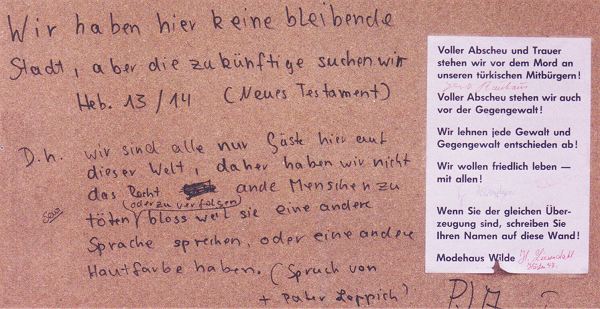 Wir haben hier keine bleibende
Stadt, aber die zukünftige suchen wir
Heb. 13/14 (Neues Testament)
D.h. wir sind alle nur Gäste hier auf
dieser Welt, daher haben wir nicht
das Recht ande Menschen zu
(oder zu verfolgen)
töten bloss weil sie eine andere
Sprache sprechen, oder eine andere
Hautfarbe haben. (Spruch von
+ Pater Leppich)
Voller Abscheu und Trauer
stehen wir vor dem Mord an
unseren türkischen Mitbürgern!
Voller Abscheu stehen wir auch
vor der Gegengewalt!
Wir lehnen jede Gewalt und
Gegengewalt entschieden ab!
Wir wollen friedlich leben —
mit allen!
Wenn Sie der gleichen Über-
zeugung sind, schreiben Sie
Ihren Namen auf diese Wand!
Modehaus Wilde